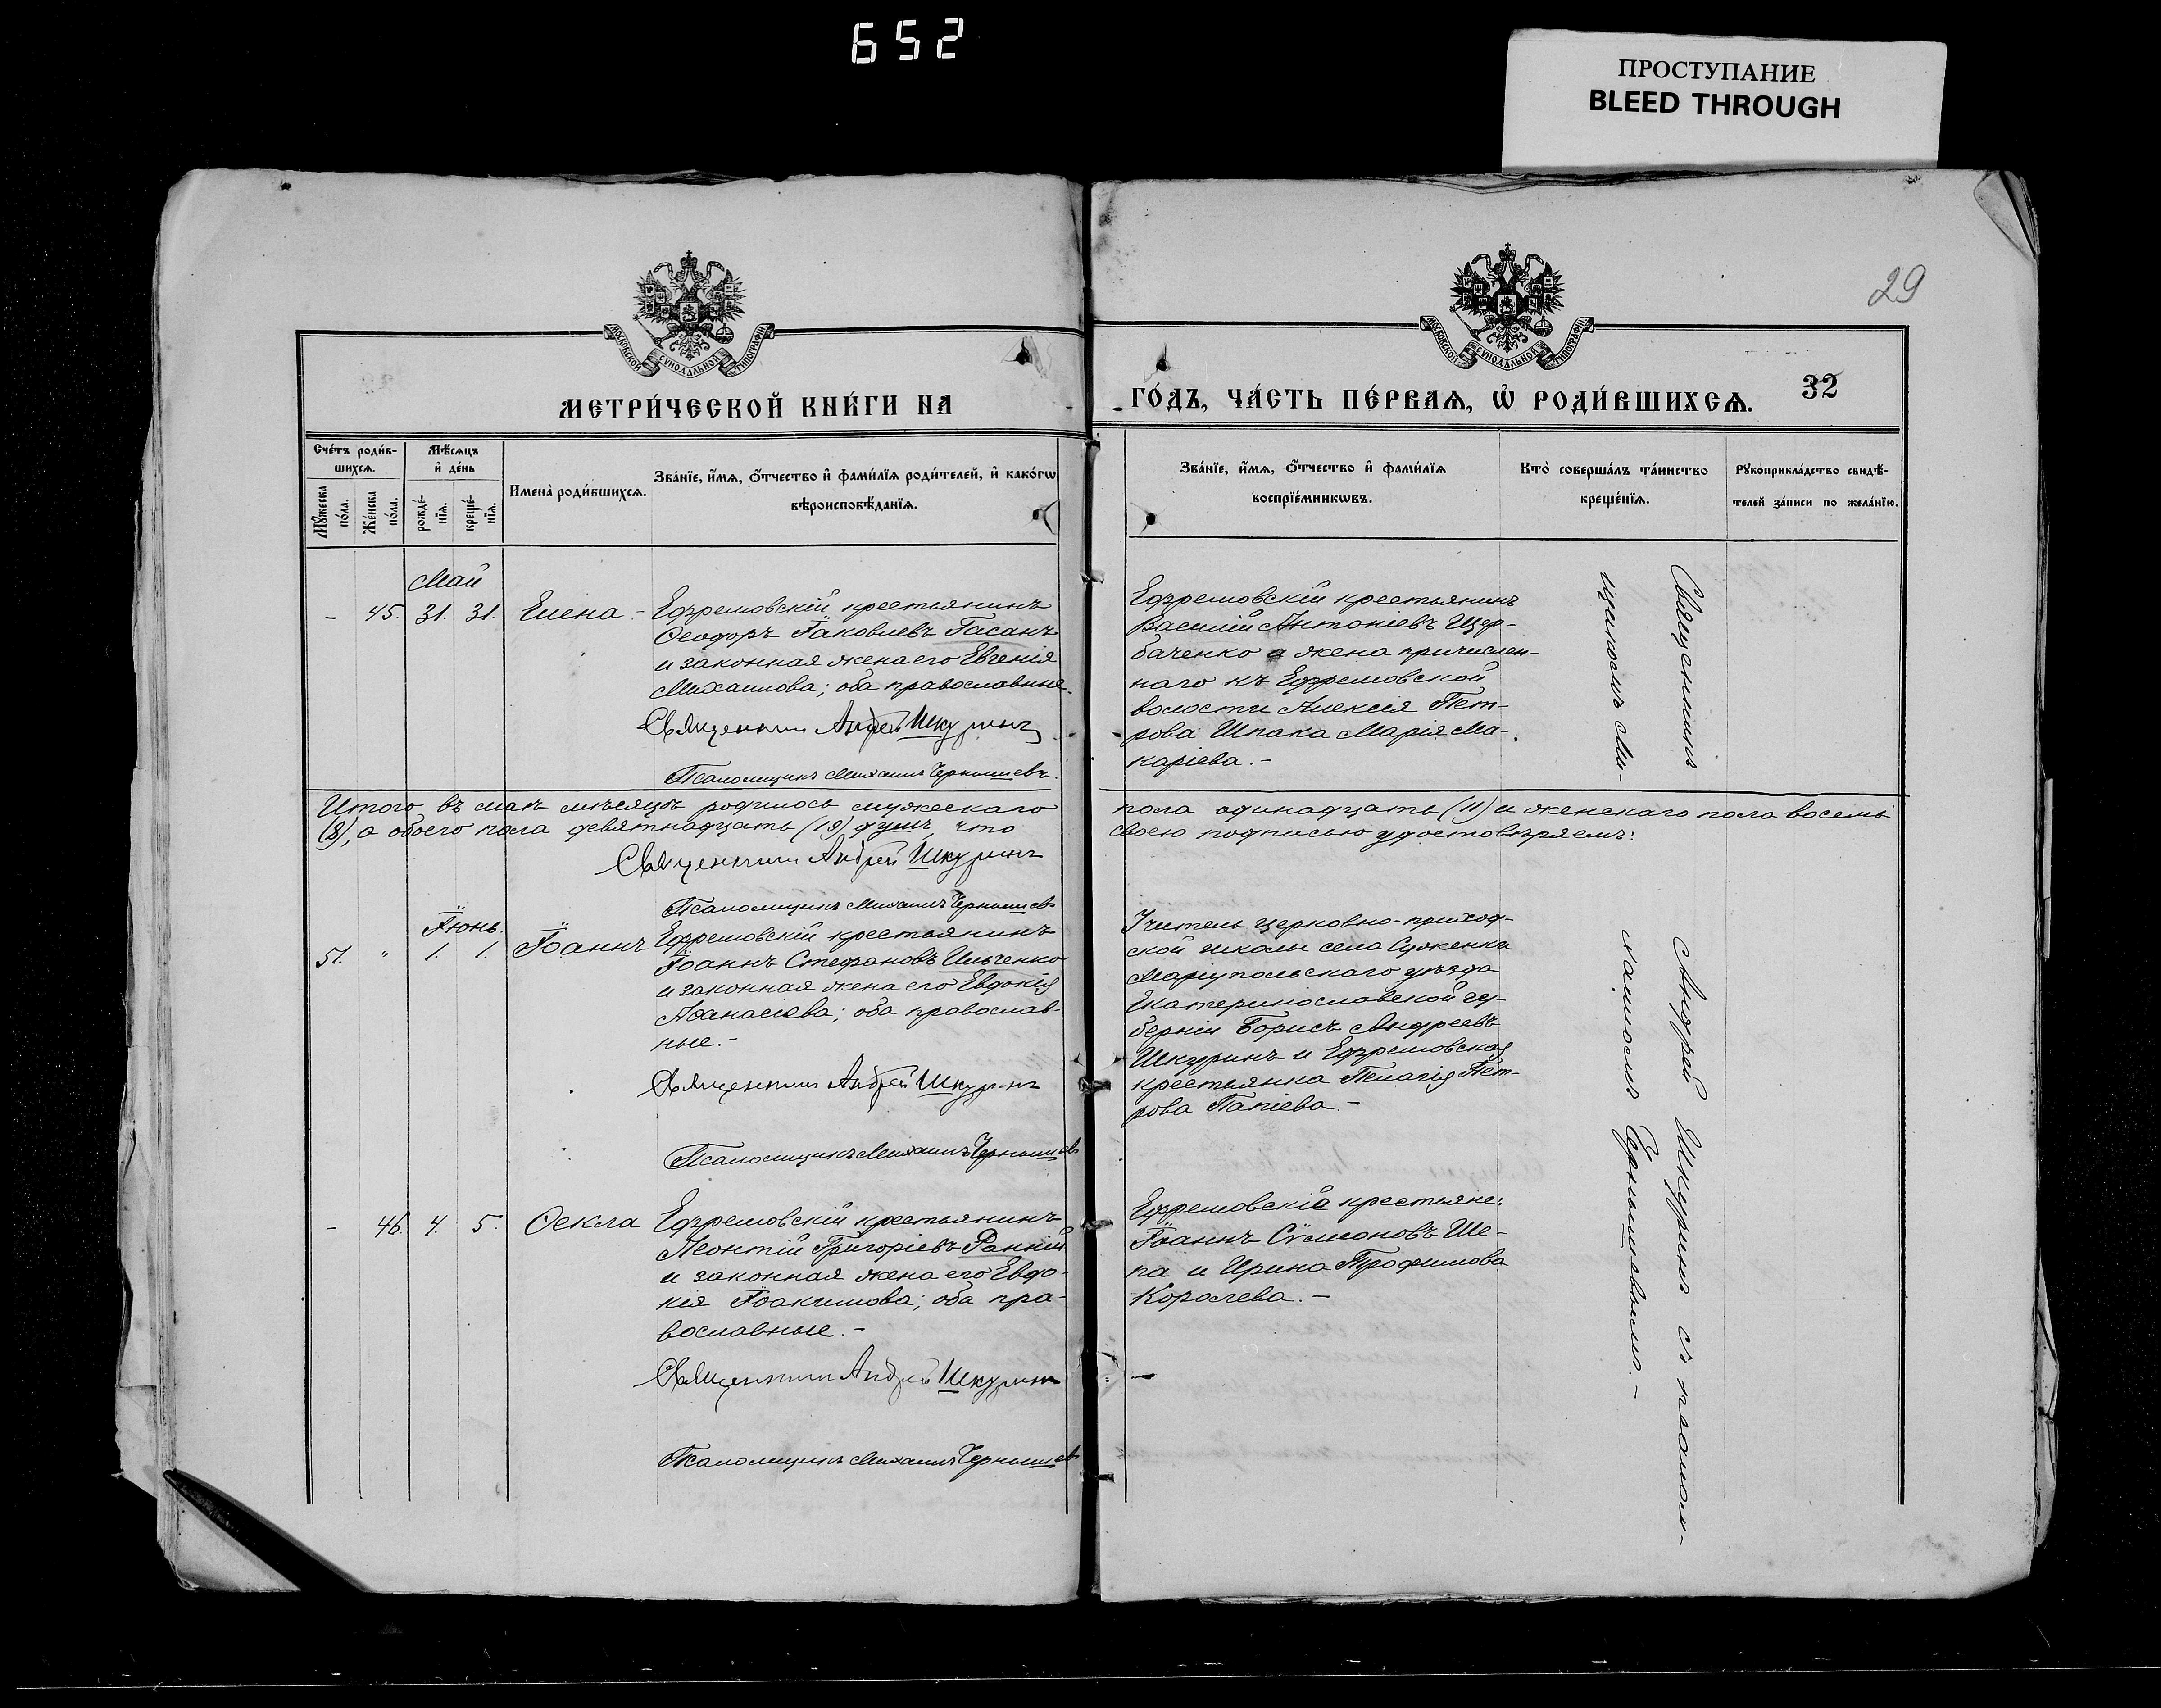 652
ПРОСТУПАНИЕ
BLEED THROUGH
29
МОСКОВСКОЙ СУНОДАЛЬНОЙ ТИПОГРАФІИ
МОСКОВСКОЙ СУНОДАЛЬНОЙ ТИПОГРАФІИ
МЕТРИ́ЧЕСКОЙ КНИ́ГИ НА
ГО́ДЪ, ЧА́СТЬ ПЕ́РВАѦ, Ѡ РОДИ́ВШИХСѦ.
32
Сче́тъ роди́в-
шихсѧ.
Мꙋ́жеска
по́ла.
Же́нска
по́ла.
Мѣ́сѧцъ
и де́нь
рожде́-
нїѧ.
креще́-
нїѧ.
Имена̀ роди́вшихсѧ.
Зва́нїе, и́мѧ, ѻ́тчество и фами́лїѧ роди́телей, и како́гѡ
вѣроисповѣ́данїѧ.
Зва́нїе, и́мѧ, ѻ́тчество и фами́лїѧ
воспрїе́мникѡвъ.
Кто̀ соверша́лъ та́инство
креще́нїѧ.
Рꙋкоприкла́дство свидѣ́-
телей за́писи по жела́нїю.
Май
- 45. 31. 31. Елена -
Ефремовскій крестьянинъ
Ѳеодоръ Іаковлевъ Гасанъ
и законная жена его Евгенія
Михаилова; оба православные.
Священникъ Андрей Шкуринъ
Псаломщикъ Михаилъ Чернышевъ.
Ефремовскій крестьянинъ
Василій Антоніевъ Щер-
баченко и жена причислен-
наго къ Ефремовской
волости Алексія Пет-
рова Шпака Марія Ма-
каріева. -
Итого въ маѣ мѣсяцѣ родилось мужескаго
пола одинадцать (11) и женскаго пола восемь
(8), а обоего пола девятнадцать (19) душъ, что
своею подписью удостовѣряемъ:
Священникъ Андрей Шкуринъ
Псаломщикъ Михаилъ Чернышевъ
Іюнь.
51. " 1. 1. Іоаннъ
Ефремовскій крестьянинъ
Іоаннъ Стефановъ Ильченко
и законная жена его Евдокія
Аѳанасіева; оба православ-
ные. -
Священникъ Андрей Шкуринъ
Псаломщикъ Михаилъ Чернышевъ
Учитель церковно-приход-
ской школы села
Маріупольскаго уѣзда
Екатеринославской гу-
берніи Борисъ Андреевъ
Шкуринъ и Ефремовская
крестьянка Пелагія Пет-
рова Папіева. -
- 46. 4. 5. Ѳекла
Ефремовскій крестьянинъ
Леонтій Григоріевъ Ранній
и законная жена его Евдо-
кія Іоакимова; оба пра-
вославные. -
Священникъ Андрей Шкуринъ
Псаломщикъ Михаилъ Чернышевъ
Ефремовскіе крестьяне:
Іоаннъ Сѵмеоновъ Ше-
па и Ирина Трофимова
Королева. -
Священникъ Андрей Шкуринъ съ псалом-
щикомъ Ми-
хаиломъ Чернышевымъ. -